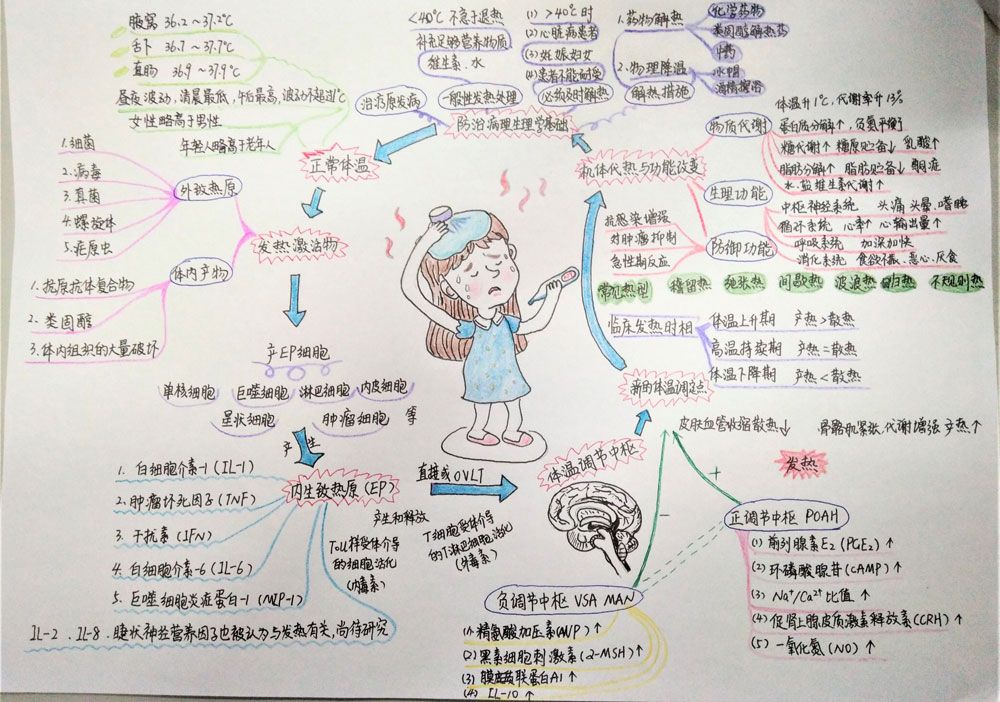 腋窝 36.2~37.2℃
舌下 36.7~37.7℃
直肠 36.9~37.9℃
昼夜波动,清晨最低,午后最高,波动不超过1℃
女性略高于男性
年轻人略高于老年人
正常体温
<40℃ 不急于退热
补充足够营养物质
维生素、水
(1) >40℃时
(2) 心脏病患者
(3) 妊娠妇女
(4) 患者不能耐受
必须及时解热
1. 药物解热
化学药物
类固醇解热药
中药
2. 物理降温
冰帽
酒精擦浴
治疗原发病
一般性发热处理
解热措施
防治病理生理学基础
机体代热与功能改变
物质代谢
体温升1℃,代谢率升13%
蛋白质分解↑,负氮平衡
糖代谢↑ 糖原贮备↓ 乳酸↑
脂肪分解↑ 脂肪贮备↓ 酮症
水、盐维生素代谢↑
生理功能
中枢神经系统 头痛 头晕 嗜睡
循环系统 心率↑ 心输出量↑
呼吸系统 加深加快
消化系统 食欲不振、恶心、厌食
防御功能
抗感染增强
对肿瘤抑制
急性期反应
常见热型 稽留热 弛张热 间歇热 波浪热 回归热 不规则热
临床发热时相
体温上升期 产热>散热
高温持续期 产热=散热
体温下降期 产热<散热
新的体温调定点
皮肤血管收缩散热↓ 骨骼肌紧张、代谢增强 产热↑
发热
发热激活物
外致热原
1. 细菌
2. 病毒
3. 真菌
4. 螺旋体
5. 疟原虫
体内产物
1. 抗原抗体复合物
2. 类固醇
3. 体内组织的大量破坏
产EP细胞
单核细胞 巨噬细胞 淋巴细胞 内皮细胞
星状细胞 肿瘤细胞 等
产生
内生致热原(EP)
1. 白细胞介素-1(IL-1)
2. 肿瘤坏死因子(TNF)
3. 干扰素(IFN)
4. 白细胞介素-6(IL-6)
5. 巨噬细胞炎症蛋白-1(MLP-1)
IL-2、IL-8、睫状神经营养因子也被认为与发热有关,尚待研究
产生和释放
Toll样受体介导
的细胞活化
(内毒素)
T细胞受体介导
的T淋巴细胞活化
(外毒素)
直接或OVLT
体温调节中枢
−
+
正调节中枢 POAH
(1) 前列腺素E2(PGE2)↑
(2) 环磷酸腺苷(cAMP)↑
(3) Na⁺/Ca²⁺ 比值↑
(4) 促肾上腺皮质激素释放素(CRH)↑
(5) 一氧化氮(NO)↑
负调节中枢 VSA MAN
(1) 精氨酸加压素(AVP)↑
(2) 黑素细胞刺激素(2-MSH)↑
(3) 膜联蛋白A1↑
(4) IL-10↑